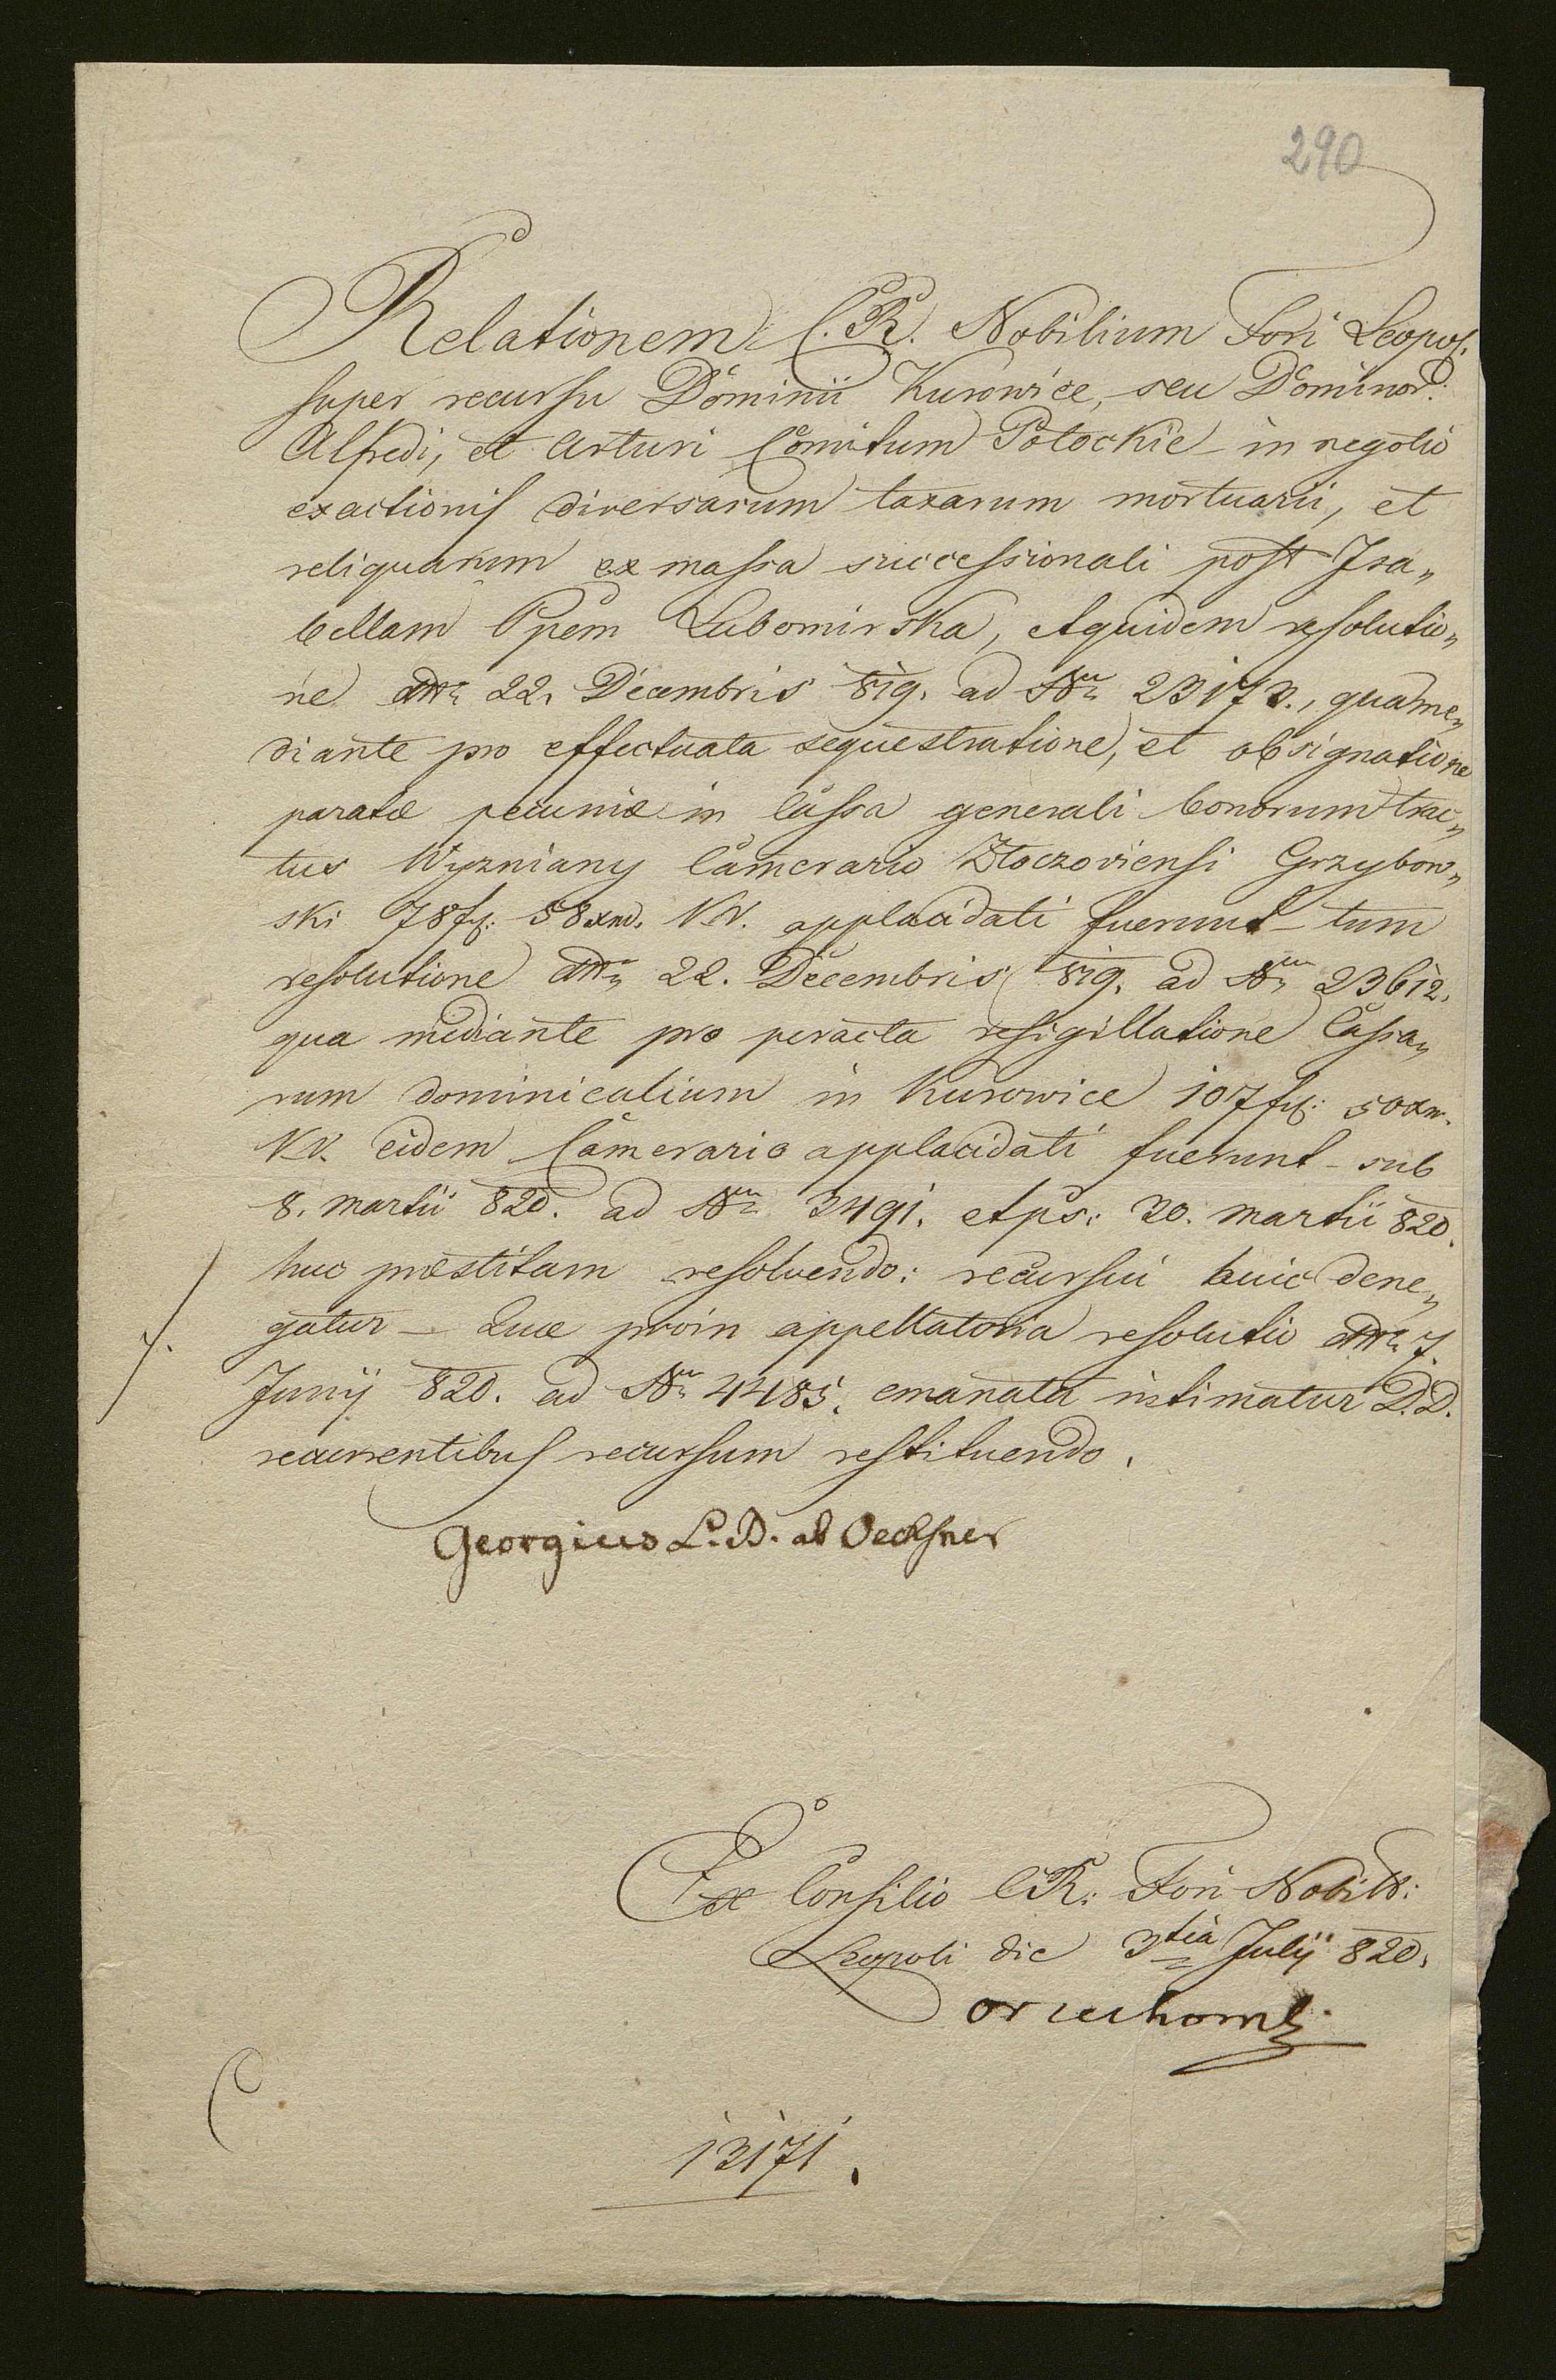 290
Relationem C. R. Nobilium Fori Leopol.
super recursu Dominii Kurowice, seu Dominor:
Alfredi, et Arturi Comitum Potockie - in negotio
exactionis diversarum taxarum mortuarii, et
reliquarum ex massa successionali post Isa„
bellam Ppem Lubomirska, etquidem resolutio„
ne ddto 22. Decembris 819. ad Nrm 23173., qua me„
diante pro effectuata sequestratione, et obsignatione
paratæ pecuniæ in Cassa generali bonorum trac„
tus Wyzniany Camerario Zloczoviensi Grzybow„
ski 78 fl: 58 xrd. V.V. applacidati fuerunt - tum
resolutione ddto 22. Decembris 819. ad Nrm 23612.
qua mediante pro peracta resigillatione Cassa„
rum dominicalium in Kurowice 107 fl: 50 xr.
V.V. eidem Camerario applacidati fuerunt - sub
8. martii 820. ad Nrm 3491. et ps: 30. martii 820.
huc præstitam resolvendo: recursui huic dene„
gatur - Quæ proin appellatoria resolutio ddto 7.
Junij 820. ad Nrm 4485. emanata intimatur D.D.
recurrentibus recursum restituendo.
Georgius L. B. ab Oechsner
Ex Consilio C R: Fori Nobilit:
Leopoli die 3tia Julij 820.
13171.